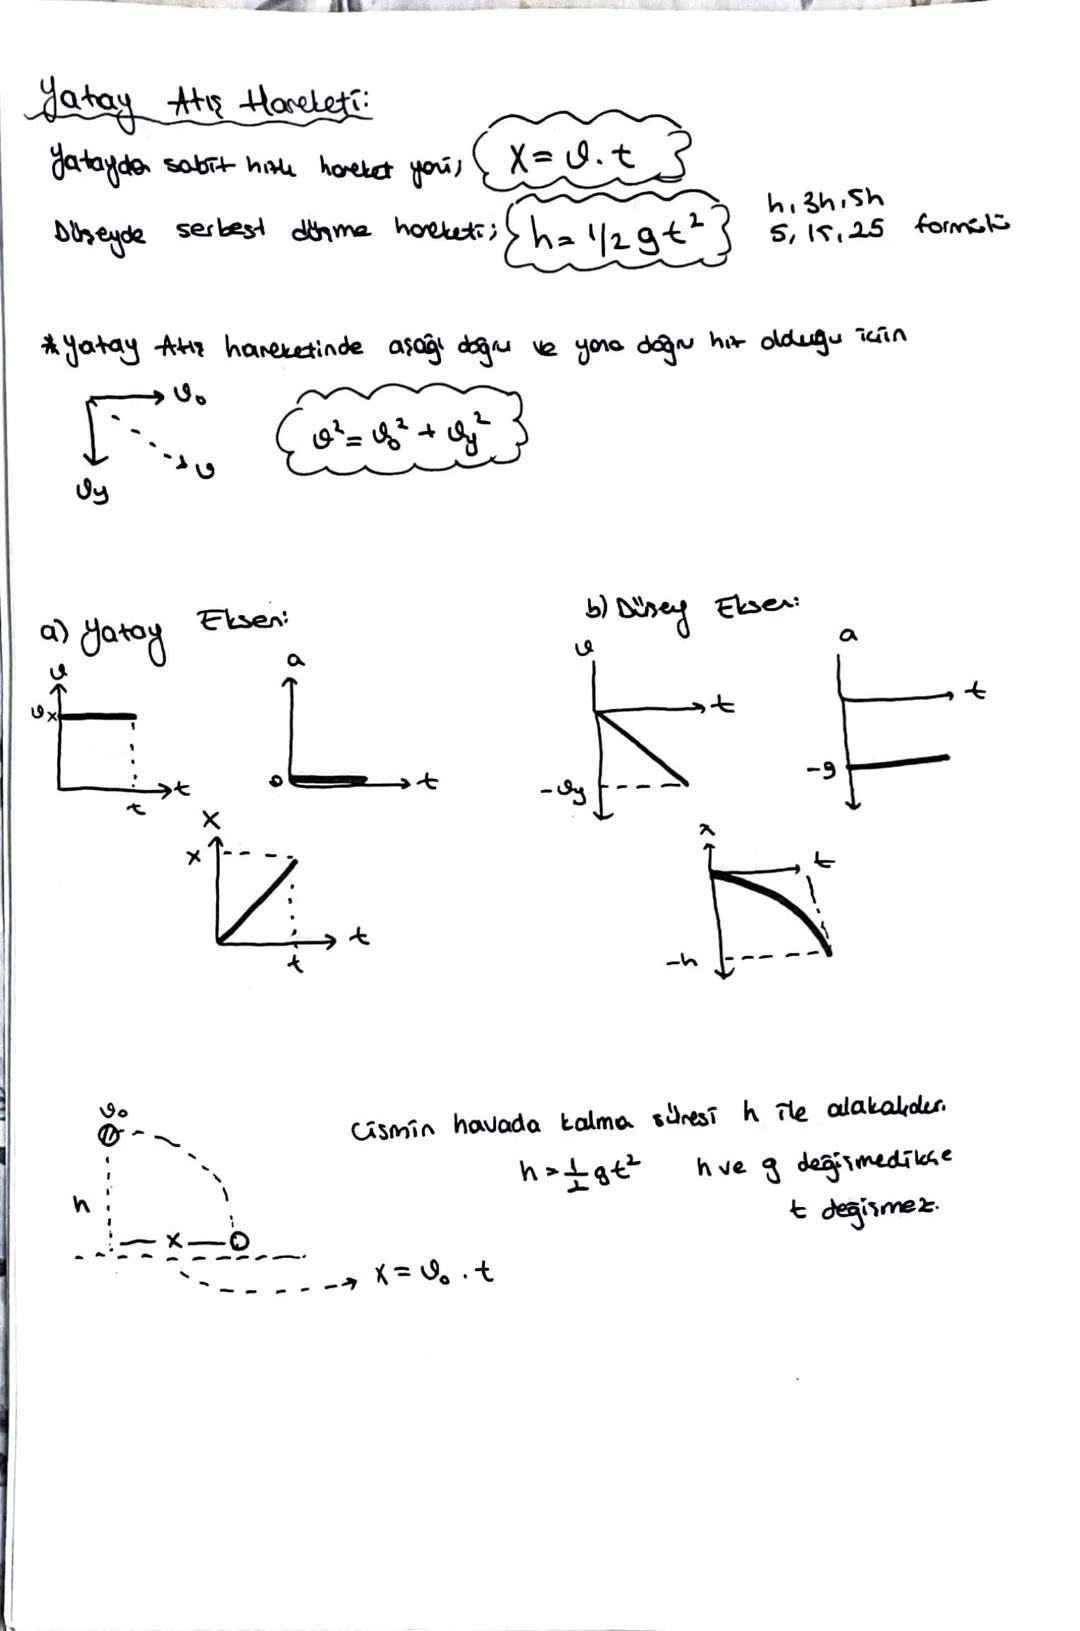 Yatay Atış Hareketi:
Yatayda sabit hızlı hareket yani; X = ϑ.t
Düşeyde serbest düşme hareketi; h = 1/2 gt² h, 3h, 5h
5, 15, 25 formülü
*Yatay Atış hareketinde aşağı doğru ve yana doğru hız olduğu için
ϑ₀
ϑ² = ϑ₀² + ϑy²
ϑ
ϑy
a) Yatay Eksen:
b) Düşey Eksen:
ϑ
a
ϑ
a
ϑx
t
t
0
t
t
t
-ϑy
-g
X
X
t
t
x
t
-h
ϑ₀
Cismin havada kalma süresi h ile alakalıdır.
h = 1/2 gt² h ve g değişmedikçe
t değişmez.
h
x
X = ϑ₀.t